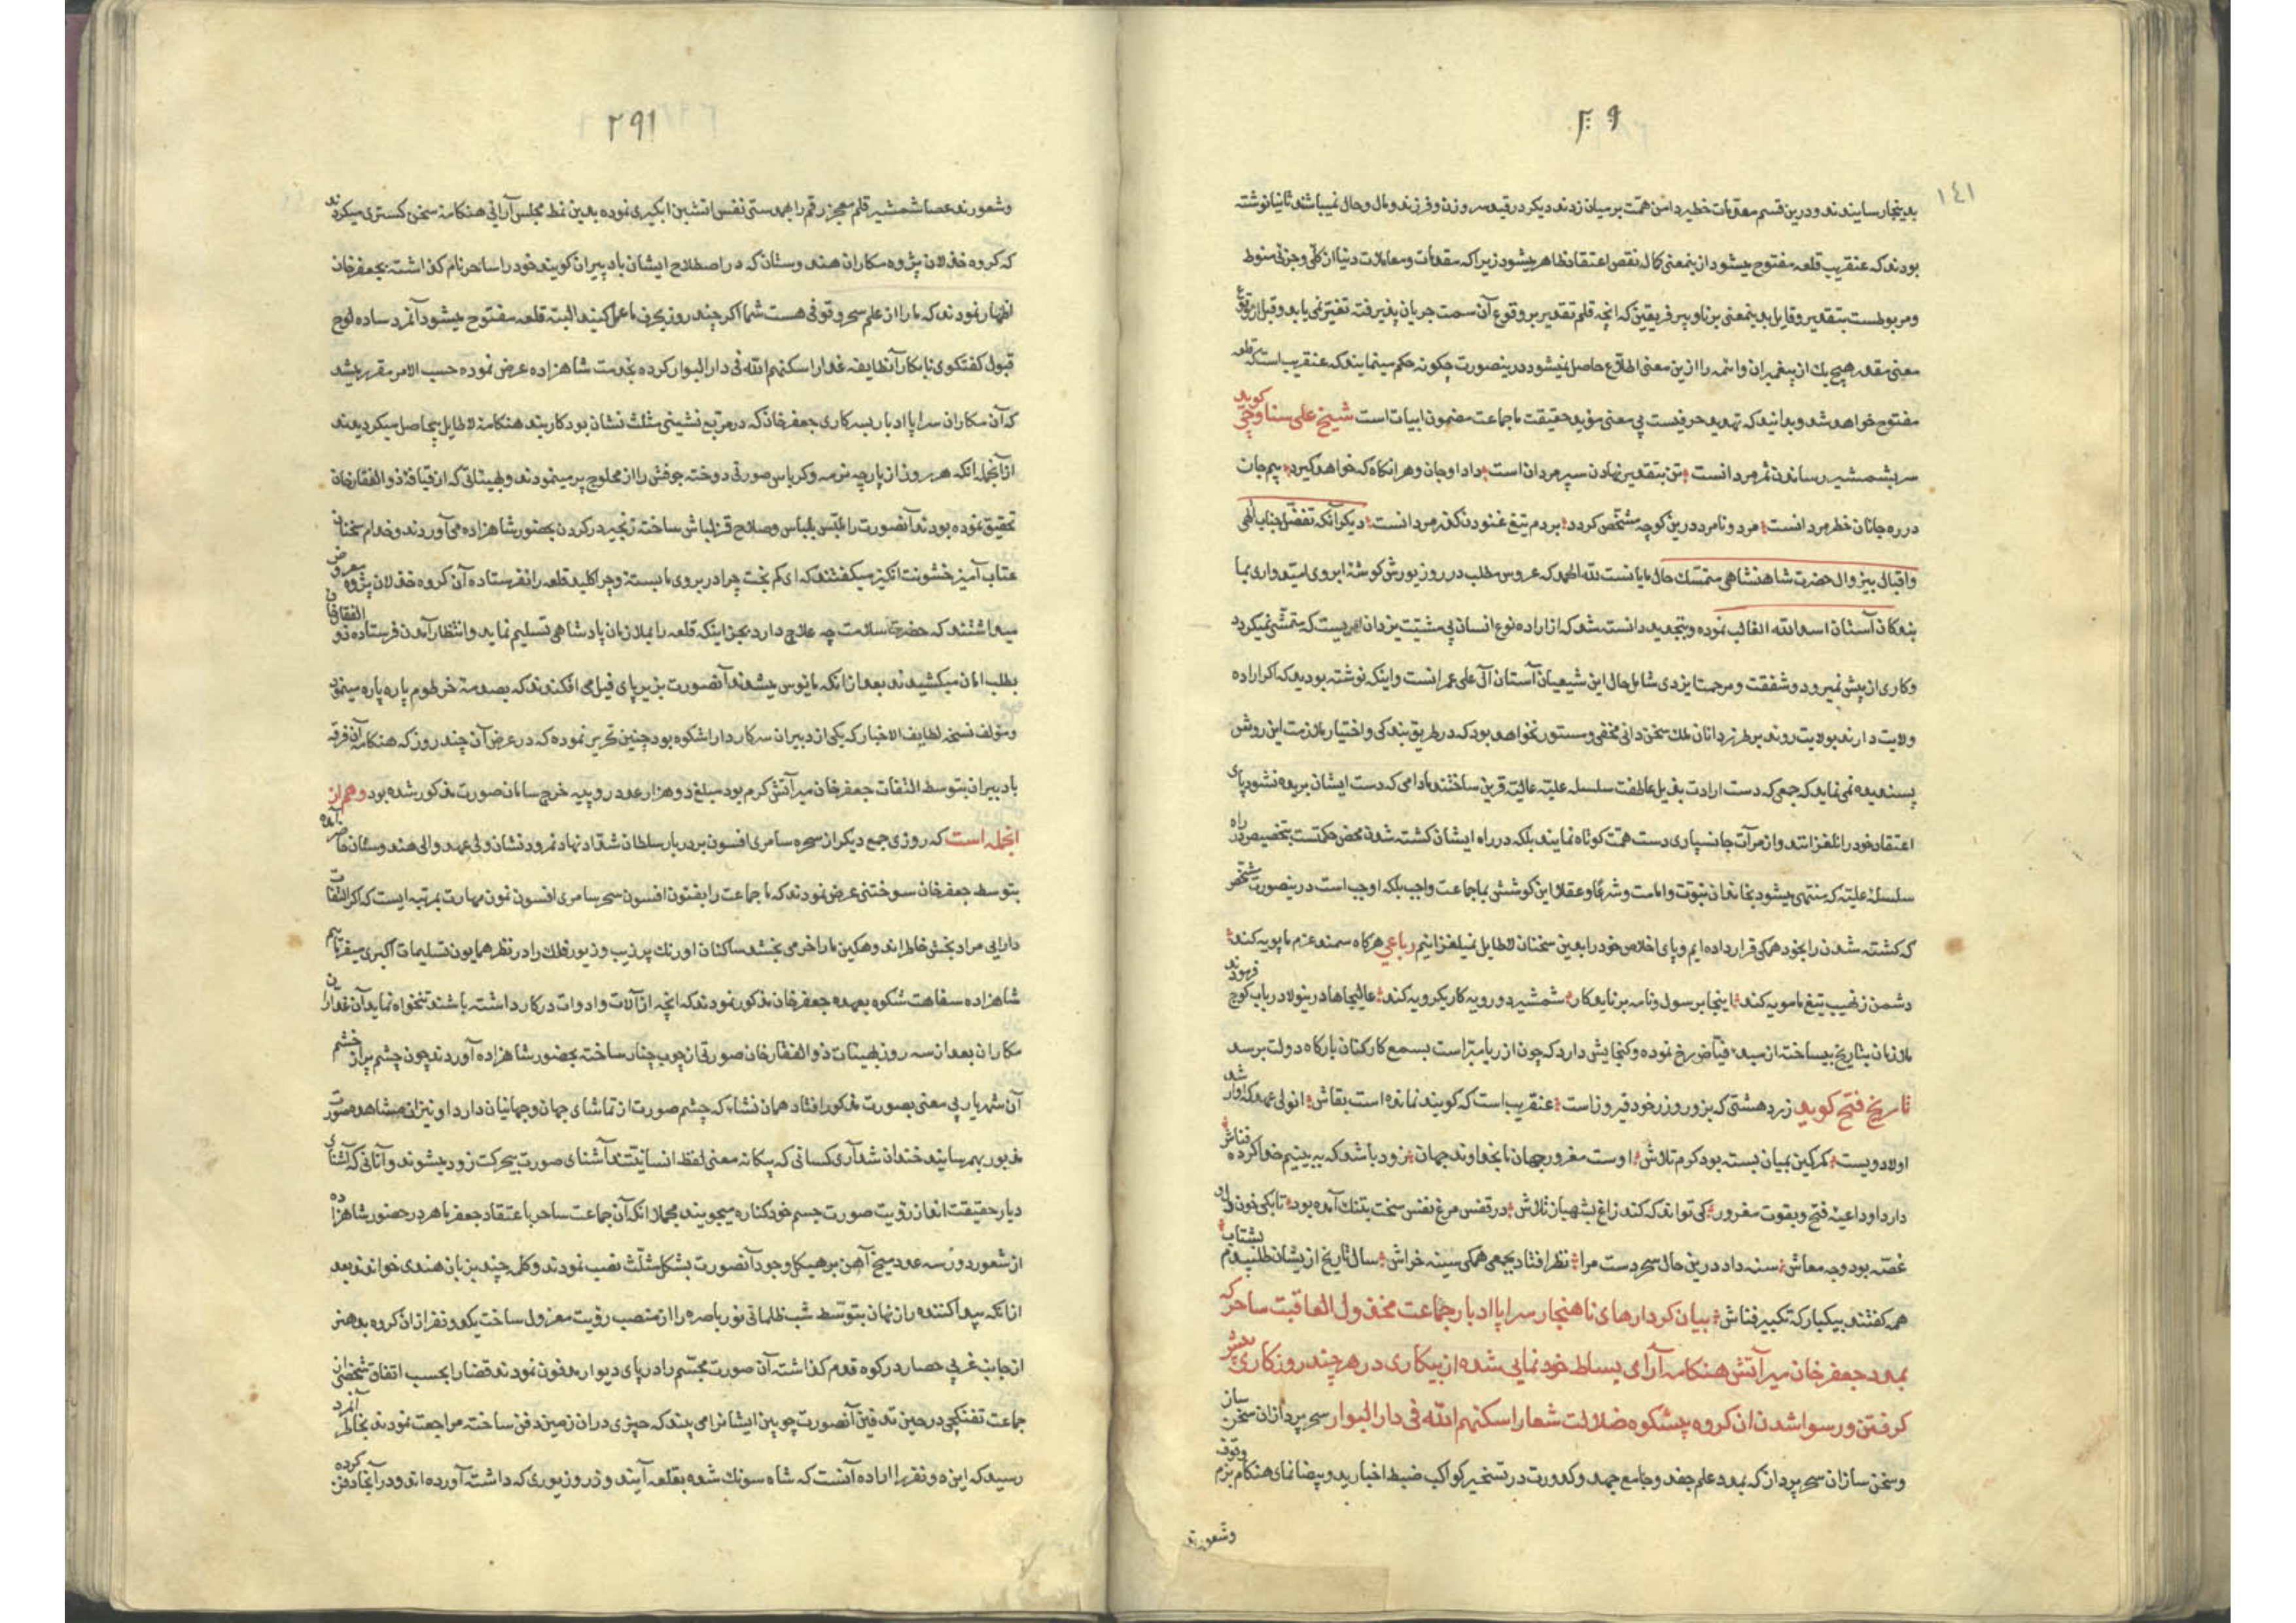 ۲۹۰
۱٤۱
بدینجا رسانیدند و درین قسم مقدمات خطیر دامن همت بر میان زدند دیکر در قید سر و زن و فرزند و مال و حال نمیباشد ثانیا نوشته
بودند که عنقریب قلعه مفتوح میشود ازینمعنی کمال نقص اعتقاد ظاهر میشود زیرا که مقدمات و معاملات دنیا از کلی و جزئی منوط
و مربوطست بتقدیر و قایل بدینمعنی برنا و پیر فریقین که انچه قلم تقدیر بر وقوع آن سمت جریان پذیرفته تغییر نمی یابد و قبل از وقوع
معنی مقدر هیچ یك از پیغمبران و ائمه را ازین معنی اطلاع حاصل نمیشود درینصورت چکونه حکم مینمایند که عنقریب است که قلعه
مفتوح خواهد شد و بدانید که تهدید حرفیست بی معنی مؤید حقیقت ما جماعت مضمون ابیات است شیخ علی سنا وقی کوید
سر بشمشیر رساندن ثمر مردانست تن بتقدیر نهادن سپر مردان است داد او جان و هر انکاه که خواهد کیرد بیم جان
در ره جانان خطر مردانست مرد و نامرد درین کوچه مشخص کردد بر دم تیغ غنودن کذر مردانست دیکر آنکه تفضل جناب الهی
و اقبال بیزوال حضرت شاهنشاهی متمسك حال مایانست لله الحمد که عروس مطلب در روز یورش کوشهٔ ابروی امیدواری بما
بندکان آستان اسد الله الغالب نموده و بتجدید دانسته شد که از اراده نوع انسان بی مشیت یزدان امریست که متمشی نمیکردد
و کاری از پیش نمیرود و شفقت و مرحمت ایزدی شامل حال این شیعیان آستان آل علی عمرانست و اینکه نوشته بودید که اکر اراده
ولایت دارند بولایت روند بر طرز دانان ملك سخن دانی مخفی و مستور نخواهد بود که در طریق بندکی و اختیار ملازمت این روش
پسندیده نمی نماید که جمعی که دست ارادت بذیل عاطفت سلسله علیه عالیه قرین ساختند مادامی که دست ایشان بریده نشود پای
اعتقاد خود را نلغزانند و از مرآت جانسپاری دست همت کوتاه نمایند بلکه در راه ایشان کشته شدن محض حکمتست بتخصیص در راه
سلسلهٔ علیه که منتهی میشود بخاندان نبوت و امامت و شرعا و عقلا این کوشش بما جماعت واجب بلکه اوجب است درینصورت مشخص
که کشته شدن را بخود همکی قرار داده ایم و پای اخلاص خود را بدین سخنان لاطایل نمیلغزانیم رباعی هرکاه سمند عزم ما پویه کند
دشمن ز نهیب تیغ ما مویه کند اینجا برسول و نامه برناید کار شمشیر دو رویه کار یکرویه کند عالیجاها درینولا در باب کوچ فرمودند
ملازمان بتاریخ بیساخته از مبدء فیاض رخ نموده و کنجایش دارد که چون از ریا مبراست بسمع کارکنان بارکاه دولت برسد
تاریخ فتح کوید زرد هشتی که بزور و زر خود فیروز است عنقریب است که کویند نمانده است بقاش
اولاد ویست کمر کین بمیان بسته بود کرم تلاش اوست مغرور جهان ما بخداوند جهان زود باشد که ببینیم خدا کرده فناش
دارد او داعیهٔ فتح و بقوت مغرور کی تواند که کند زاغ بشهباز تلاش در قفس مرغ نفس سخت بتنك آمده بود تا بکی خون
غصه بود وجه معاش سنه داد درین حال سحر دست مرا نظر افتاد بجمعی همکی سینه خراش سال تاریخ از یشان طلبیدم بشتاب
همه کفتند بیکبار که تکبیر فناش بیان کردارهای ناهنجار سراپا ادبار جماعت مخذول العاقبت ساحر که
بمدد جعفر خان میر آتش هنکامه آرای بساط خود نمایی شده از بیکاری در هر چند روز کاری پیش
کرفتن و رسوا شدن ان کروه پشکوه ضلالت شعار اسکنهم الله فی دار البوار سحر پردازان سخن ساز
و سخن سازان سحر پرداز که بمدد علم جفر و جامع جهد و کدورت در تسخیر کواکب ضبط اخبار ید و بیضا نمای هنکام بزم وقوف
و شعورند
۲۹۱
و شعورند عصا شمشیر قلم معجز رقم را بهمدستی نفس اتشین ابکیری نموده بدین نمط مجلس آرائی هنکامهٔ سخن کستری میکردند
که کروه خذلان پژوه مکاران هندوستان که در اصطلاح ایشان باد پیران کویند خود را ساحر نام کذاشته بجعفر خان
اظهار نمودند که ما را از علم سحر وقوفی هست شما اکر چند روز بحرف ما عمل کنید البته قلعه مفتوح میشود آنمرد ساده لوح
قبول کفتکوی نابکار آنطایفه غدار اسکنهم الله فی دار البوار کرده بخدمت شاهزاده عرض نموده حسب الامر مقرر میشد
که آن مکاران سراپا ادبار بسرکاری جعفر خان که در مربع نشینی مثلث نشان بود کاربند هنکامهٔ لاطایل بیحاصل میکردیدند
از آنجمله انکه هر روز از پارچه نرمه و کرباس صورتی دوخته جوفش را از محلوج پر مینمودند و بهیئاتی که از قیافهٔ ذو الفقار خان
تحقیق نموده بودند آنصورت را ملبس بلباس و صلاح قزلباش ساخته زنجیر در کردن بحضور شاهزاده می آوردند و خدام سخنان
عتاب آمیز خشونت انکیز میکفتند که ای کم بخت چرا در بروی ما بسته و چرا کلید قلعه را نفرستاده آن کروه خذلان پژوه معروض
میداشتند که حضرت سلامت چه علاج دارد بجز اینکه قلعه را بملازمان پادشاهی تسلیم نماید و انتظار آمدن فرستاده ذو الفقار خان
بطلب امان میکشیدند بعد از انکه مایوس میشدند آنصورت بزیر پای فیل می افکندند که بصدمهٔ خرطوم پاره پاره مینمود
و مؤلف نسخه لطایف الاخبار که یکی از دبیران سرکار دارا شکوه بود چنین تحریر نموده که در عرض آن چند روز که هنکامه آن فرقه
باد پیران بتوسط التفات جعفر خان میر آتش کرم بود مبلغ دو هزار عدد روپیه خرج سامان صورت مذکور شده بود و هم از
انجمله است که روزی جمع دیکر از سحره سامری افسون بر دربار سلطان شداد نهاد نمرود نشان ولی عهد والی هندوستان حاضر آمده
بتوسط جعفر خان سوختنی عرض نمودند که ما جماعت را بفنون افسون سحر سامری افسون نمون مهارت بمرتبه ایست که اکر التفات
دارایی مراد بخش خاطر اند و هکین ما را خرمی بخشد ساکنان اورنك پر زیب و زیور فلك را در نظر همایون تسلیمات اکبری میفرمایم
شاهزاده سفاهت شکوه بعهده جعفر خان مذکور نمودند که انچه از آلات و ادوات در کار داشته باشند تنخواه نماید آن غداران
مکاران بعد از سه روز بهیئات ذو الفقار خان صورتی از چوب چنار ساخته بحضور شاهزاده آوردند چون چشم پر از خشم
آن شهریار بی معنی بصورت مذکور افتاد همان نشاء که چشم صورت از تماشای جهان و جهانیان دارد او نیز از مشاهده صورت
مذبور بهم رسانید خندان شد آری کسانی که بیکانه معنی لفظ انسانیتند آشنای صورت بیحرکت زود میشوند و آنانی که آشنای
دیار حقیقت اند از رؤیت صورت جسم خود کناره میجویند مجملا انکه آن جماعت ساحر با اعتقاد جعفر ماهر در حضور شاهزاده
از شعور دور سه عدد میخ آهن بر هیکل وجود آنصورت بشکل مثلث نصب نمودند و کلمهٔ چند بزبان هندی خواندند بعد
از انکه پیدا کننده راز نهان بتوسط شب ظلمانی نور باصره را از منصب رؤیت معزول ساخت یکدو نفر از ان کروه بدهنر
از جانب غربی حصار در کوه قدم کذاشته آن صورت مجسم را در پای دیوار مدفون نمودند قضا را بحسب اتفاق شخصی از
جماعت تفنکچی در حین تدفین آنصورت چوبین ایشانرا می بیند که چیزی در ان زمین دفن ساخته مراجعت نمودند بخاطر آنمرد
رسید که این دو نفر را اراده آنست که شاه سونك شده بقلعه آیند و زر و زیوری که داشته آورده اند و در آنجا دفن کرده